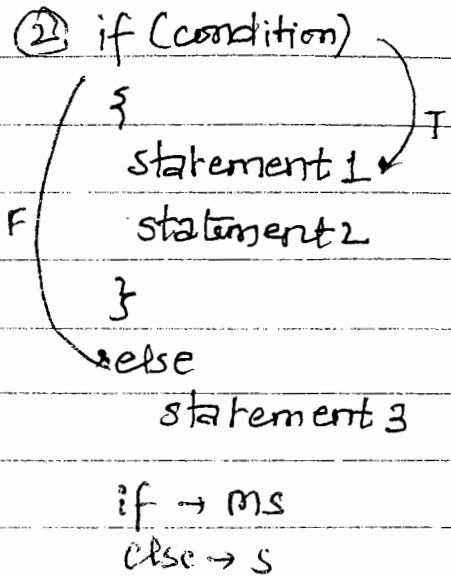 ② if (condition)
{
T
statement 1
F
statement 2
}
else
statement 3
if → ms
else → s